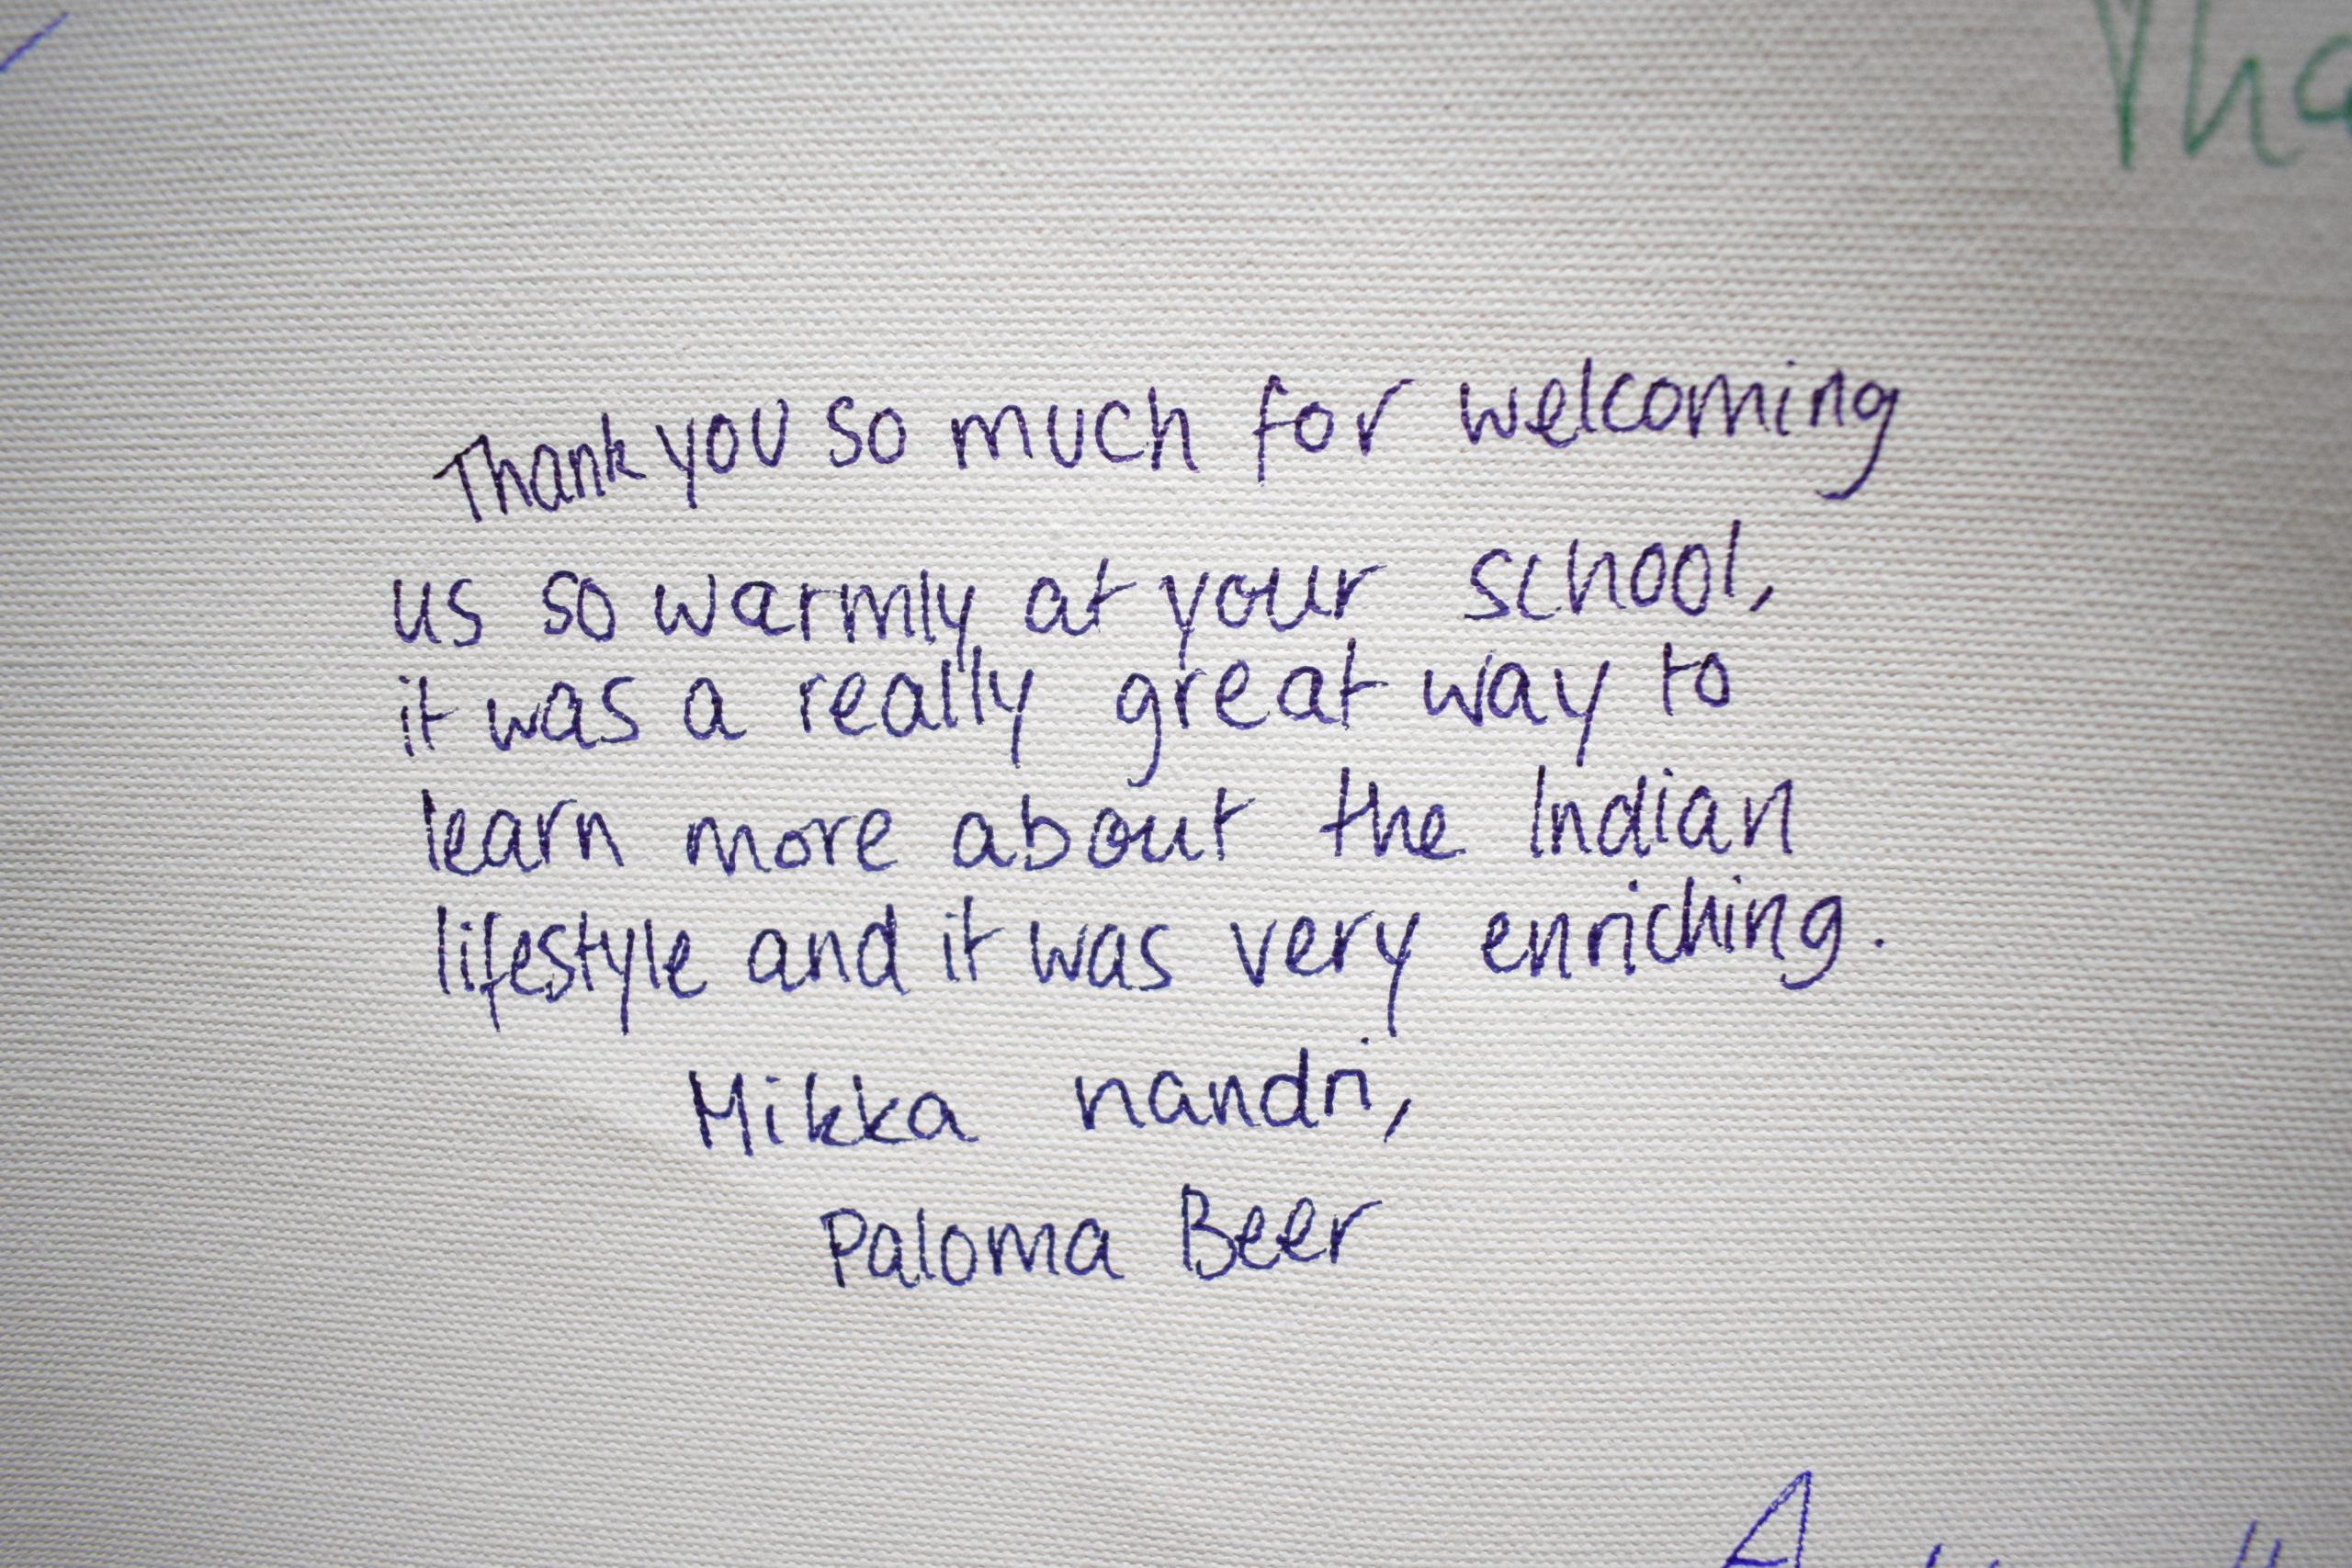 Thank you so much for welcoming
us so warmly at your school,
it was a really great way to
learn more about the Indian
lifestyle and it was very enriching.
Mikka nandri,
Paloma Beer